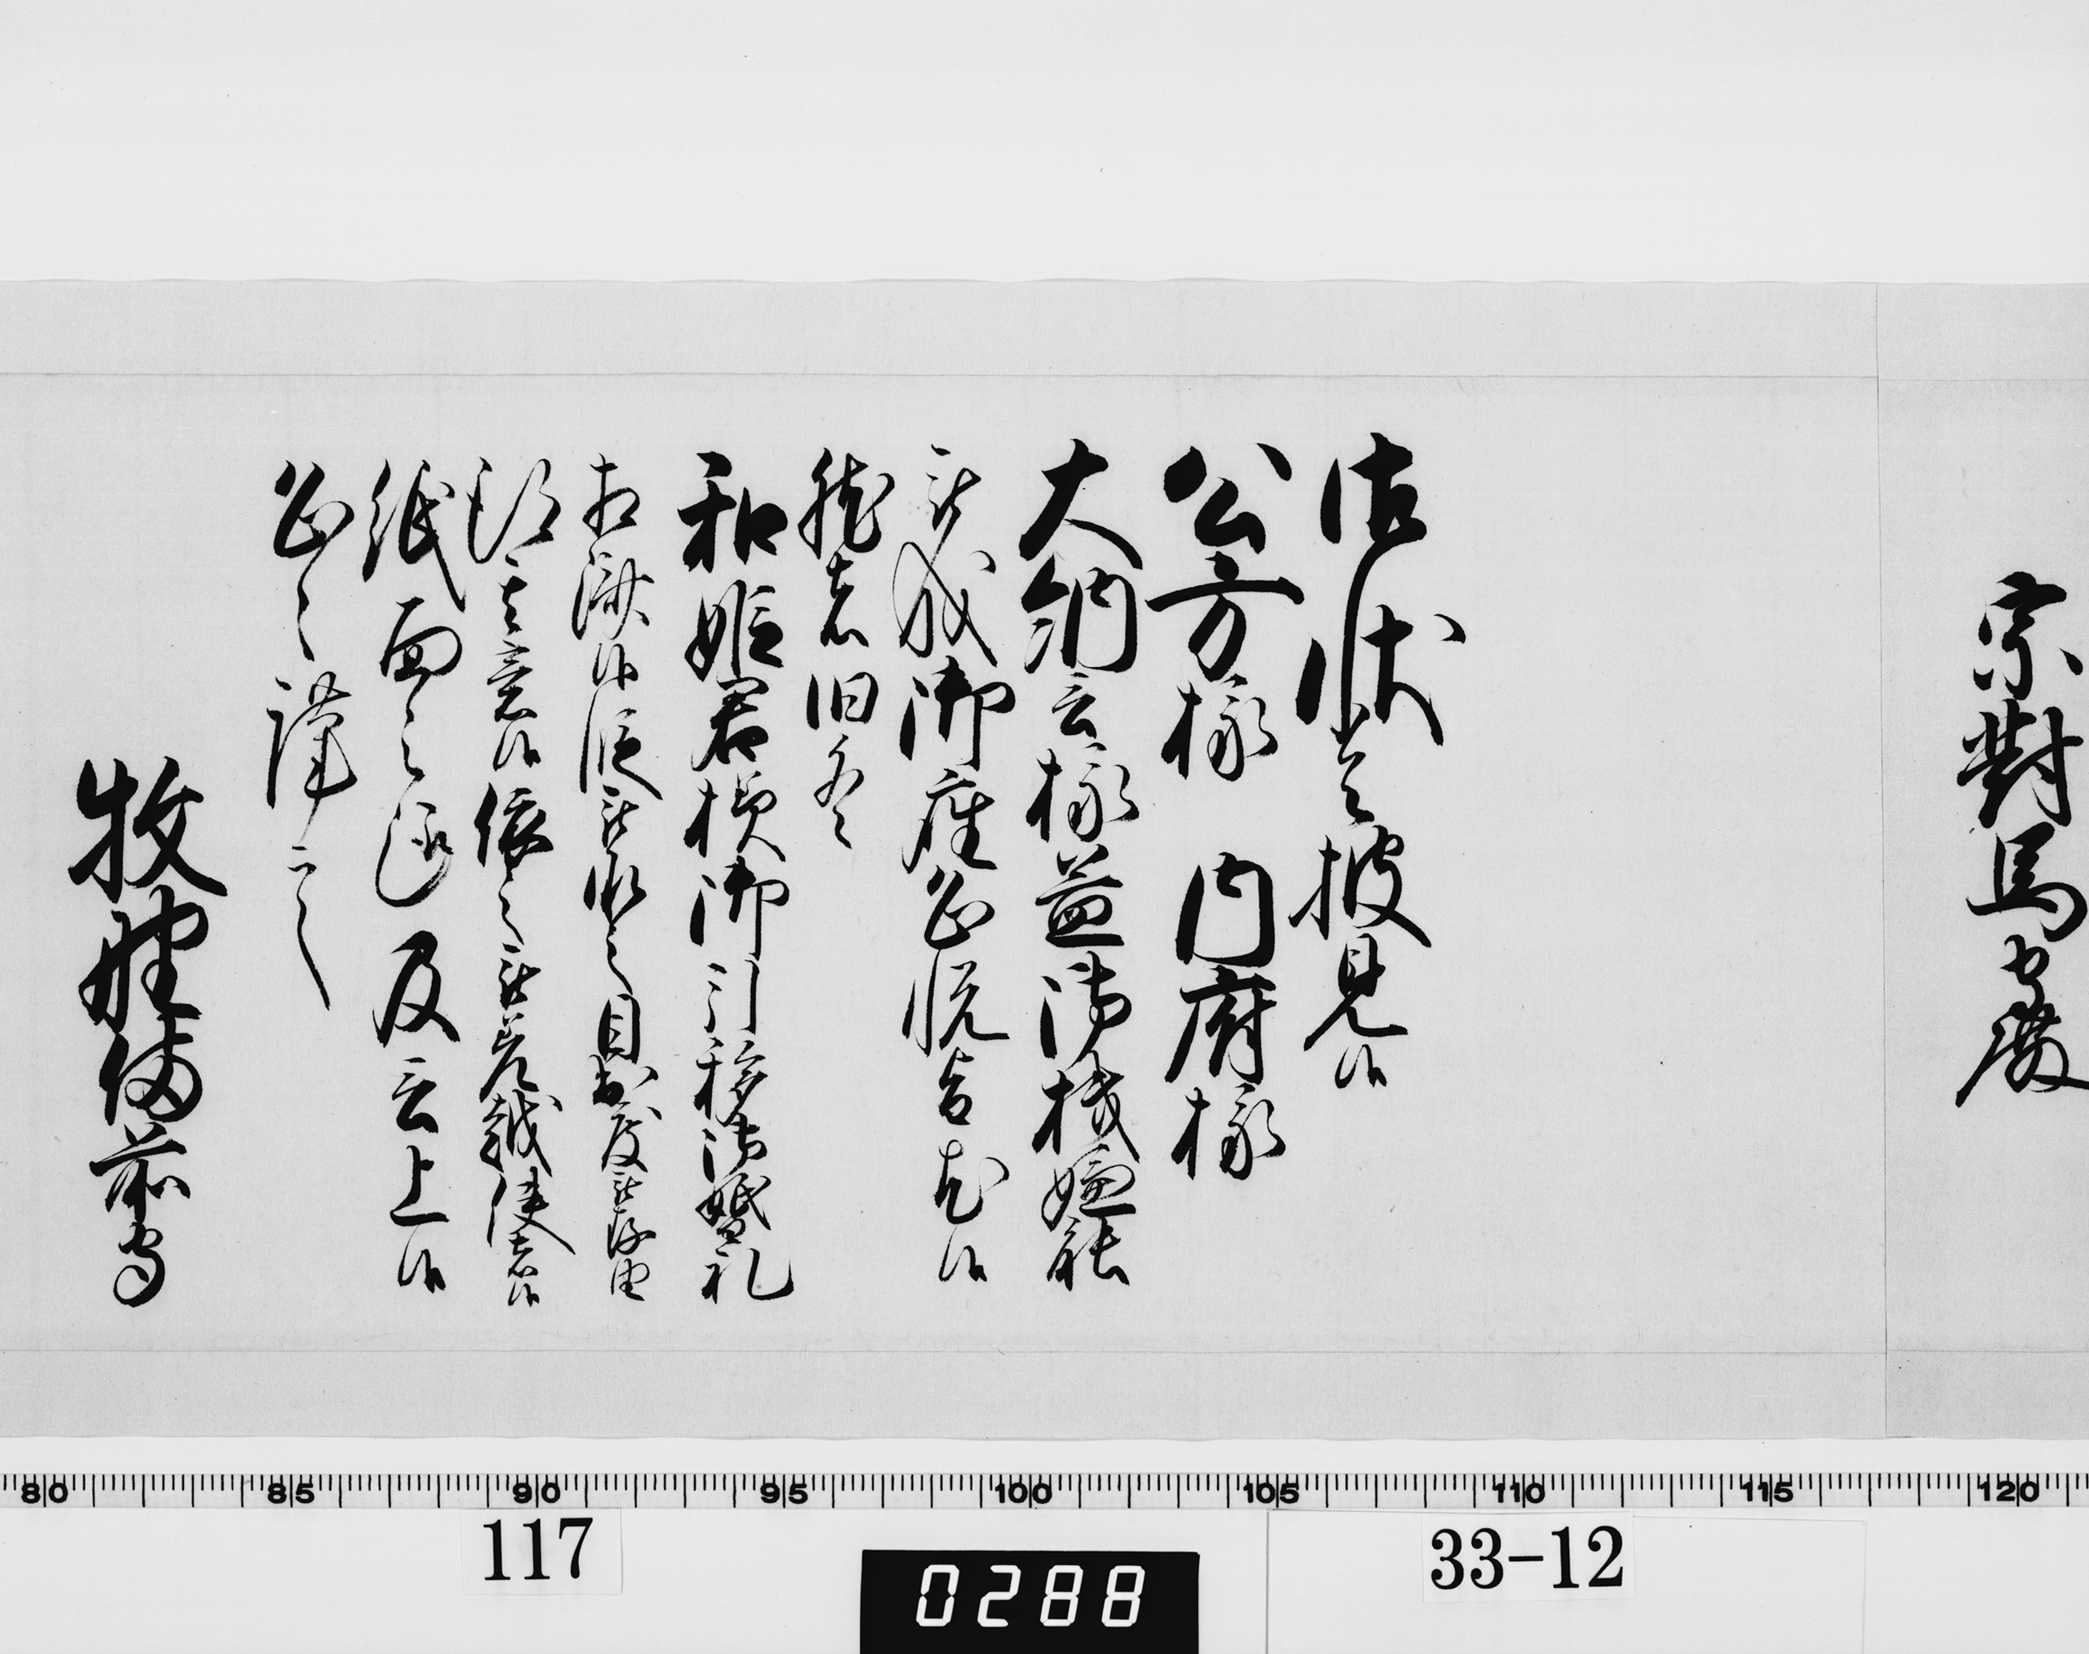 宗對馬守殿
御状令披見候
公方様 内府様
大納言様益御機嫌能
被成御座恐悦旨尤候
然者旧冬
和姫君様御引移御婚礼
相済候段被承之目出度被存由
得其意候依之被差越使者候
紙面之趣及言上候
恐々謹言
牧野備前守
80 85 90 95 100 105 110 115 120
117
0288
33-12